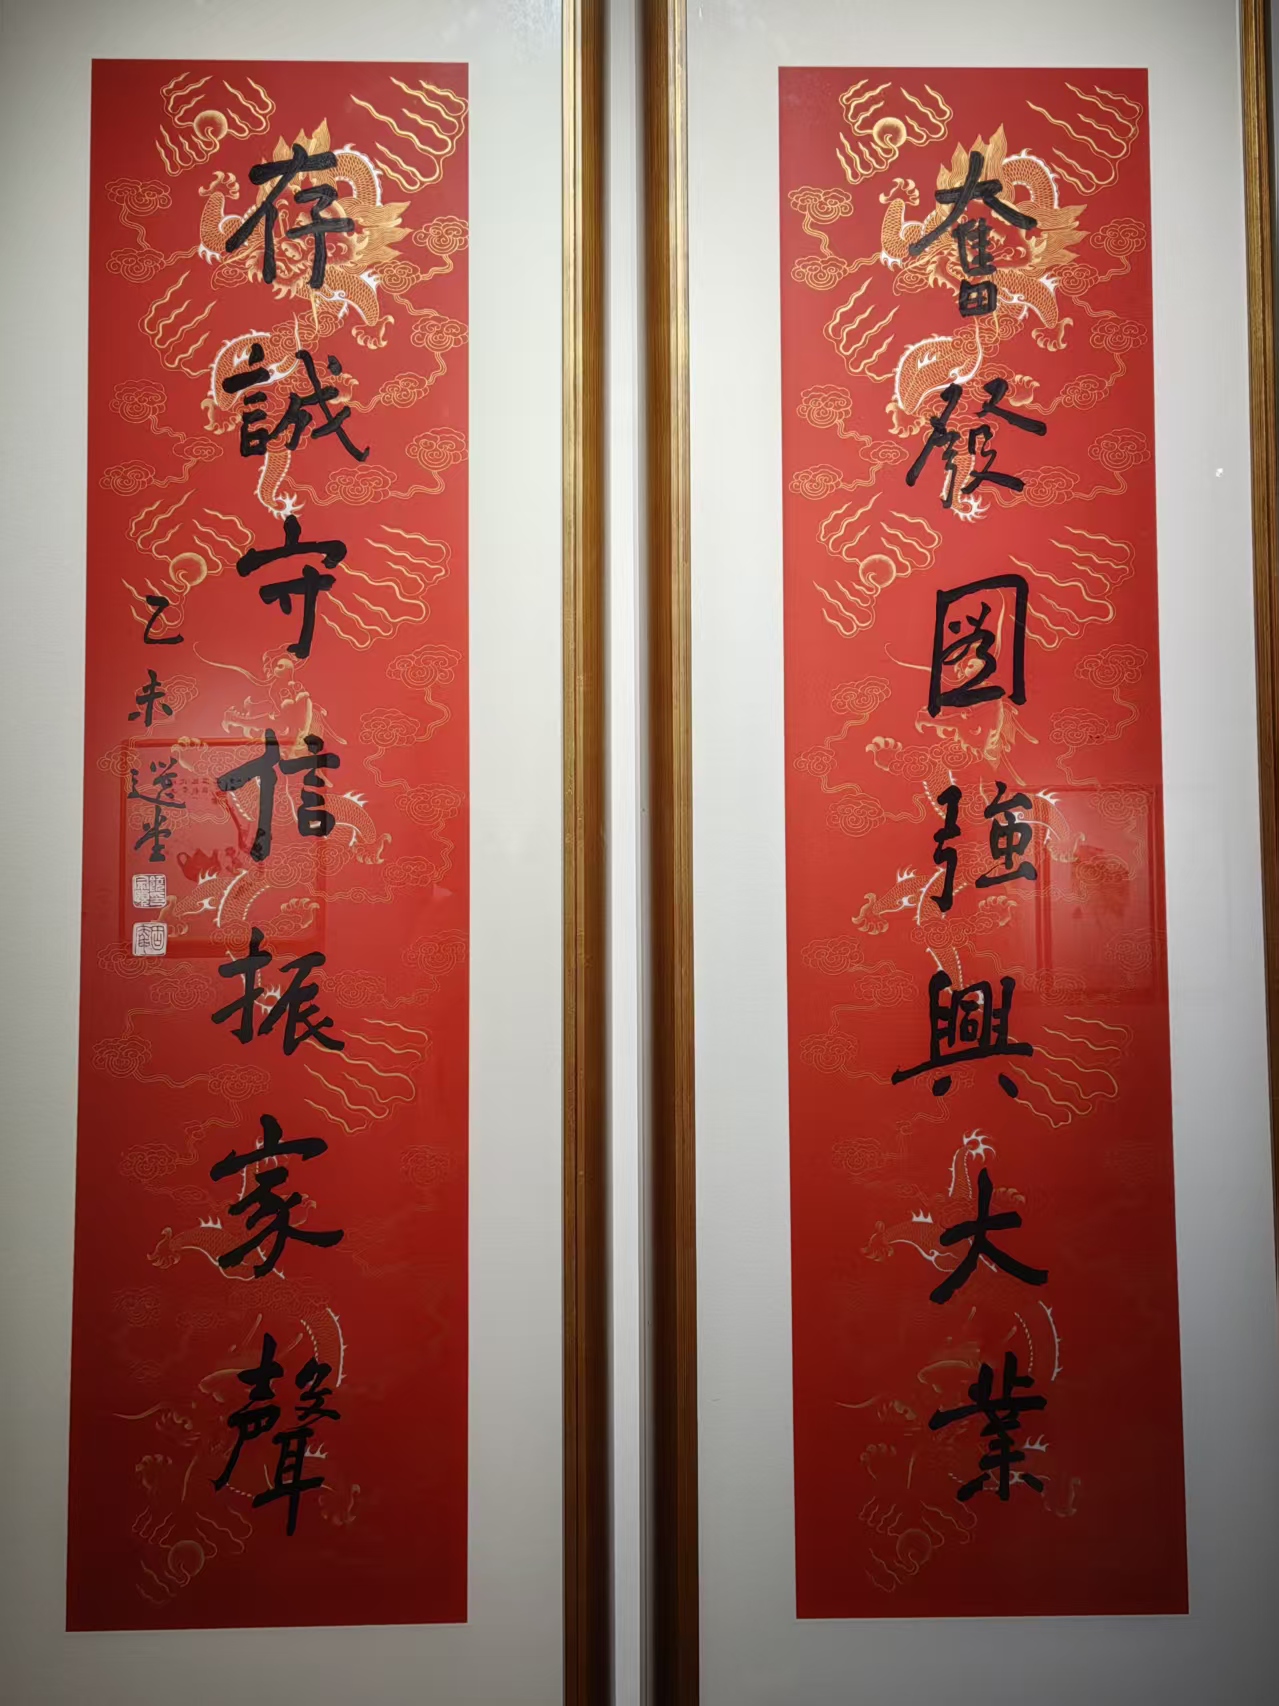 奮發圖強興大業
存誠守信振家聲
乙未 選堂